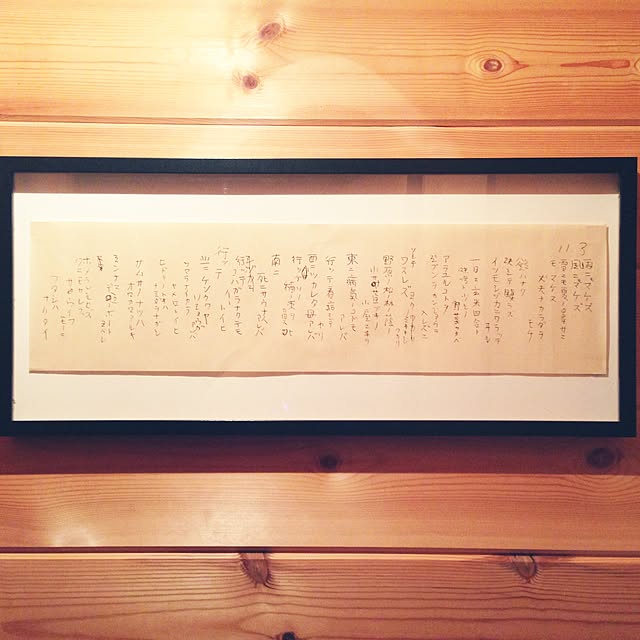 11 3
雨ニモマケズ
風ニモマケズ
雪ニモ夏ノ暑サニモマケヌ
丈夫ナカラダヲモチ
慾ハナク
決シテ瞋ラズ
イツモシヅカニワラッテヰル
一日ニ玄米四合ト
味噌ト少シノ野菜ヲタベ
アラユルコトヲ
ジブンヲカンジョウニ入レズニ
ヨクミキキシワカリ
ソシテワスレズ
野原ノ松ノ林ノ蔭ノ
小サナ萱ブキノ小屋ニヰテ
東ニ病気ノコドモアレバ
行ッテ看病シテヤリ
西ニツカレタ母アレバ
行ッテソノ稲ノ束ヲ負ヒ
南ニ
死ニサウナ人アレバ
行ッテコハガラナクテモ
イヽトイヒ
北ニケンクヮヤ
ソショウガアレバ
ツマラナイカラ
ヤメロトイヒ
ヒドリノトキハ
ナミダヲナガシ
サムサノナツハ
オロオロアルキ
ミンナニデクノボートヨバレ
ホメラレモセズ
クニモサレズ
サウイフモノニ
ワタシハナリタイ